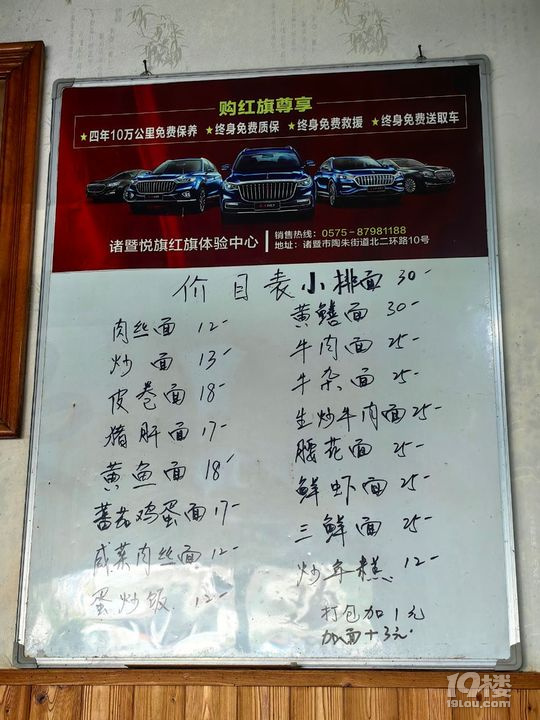 购红旗尊享
★四年10万公里免费保养 ★终身免费质保 ★终身免费救援 ★终身免费送取车
诸暨悦旗红旗体验中心
销售热线：0575-87981188
地址：诸暨市陶朱街道北二环路10号
价目表
肉丝面 12-
炒面 13-
皮卷面 18-
猪肝面 17-
黄鱼面 18-
蕃茄鸡蛋面 17-
咸菜肉丝面 12-
蛋炒饭 12-
小排面 30-
黄鳝面 30-
牛肉面 25-
牛杂面 25-
生炒牛肉面 25-
腰花面 25-
鲜虾面 25-
三鲜面 25-
炒年糕 12-
打包加1元
加面+3元
19楼
19lou.com